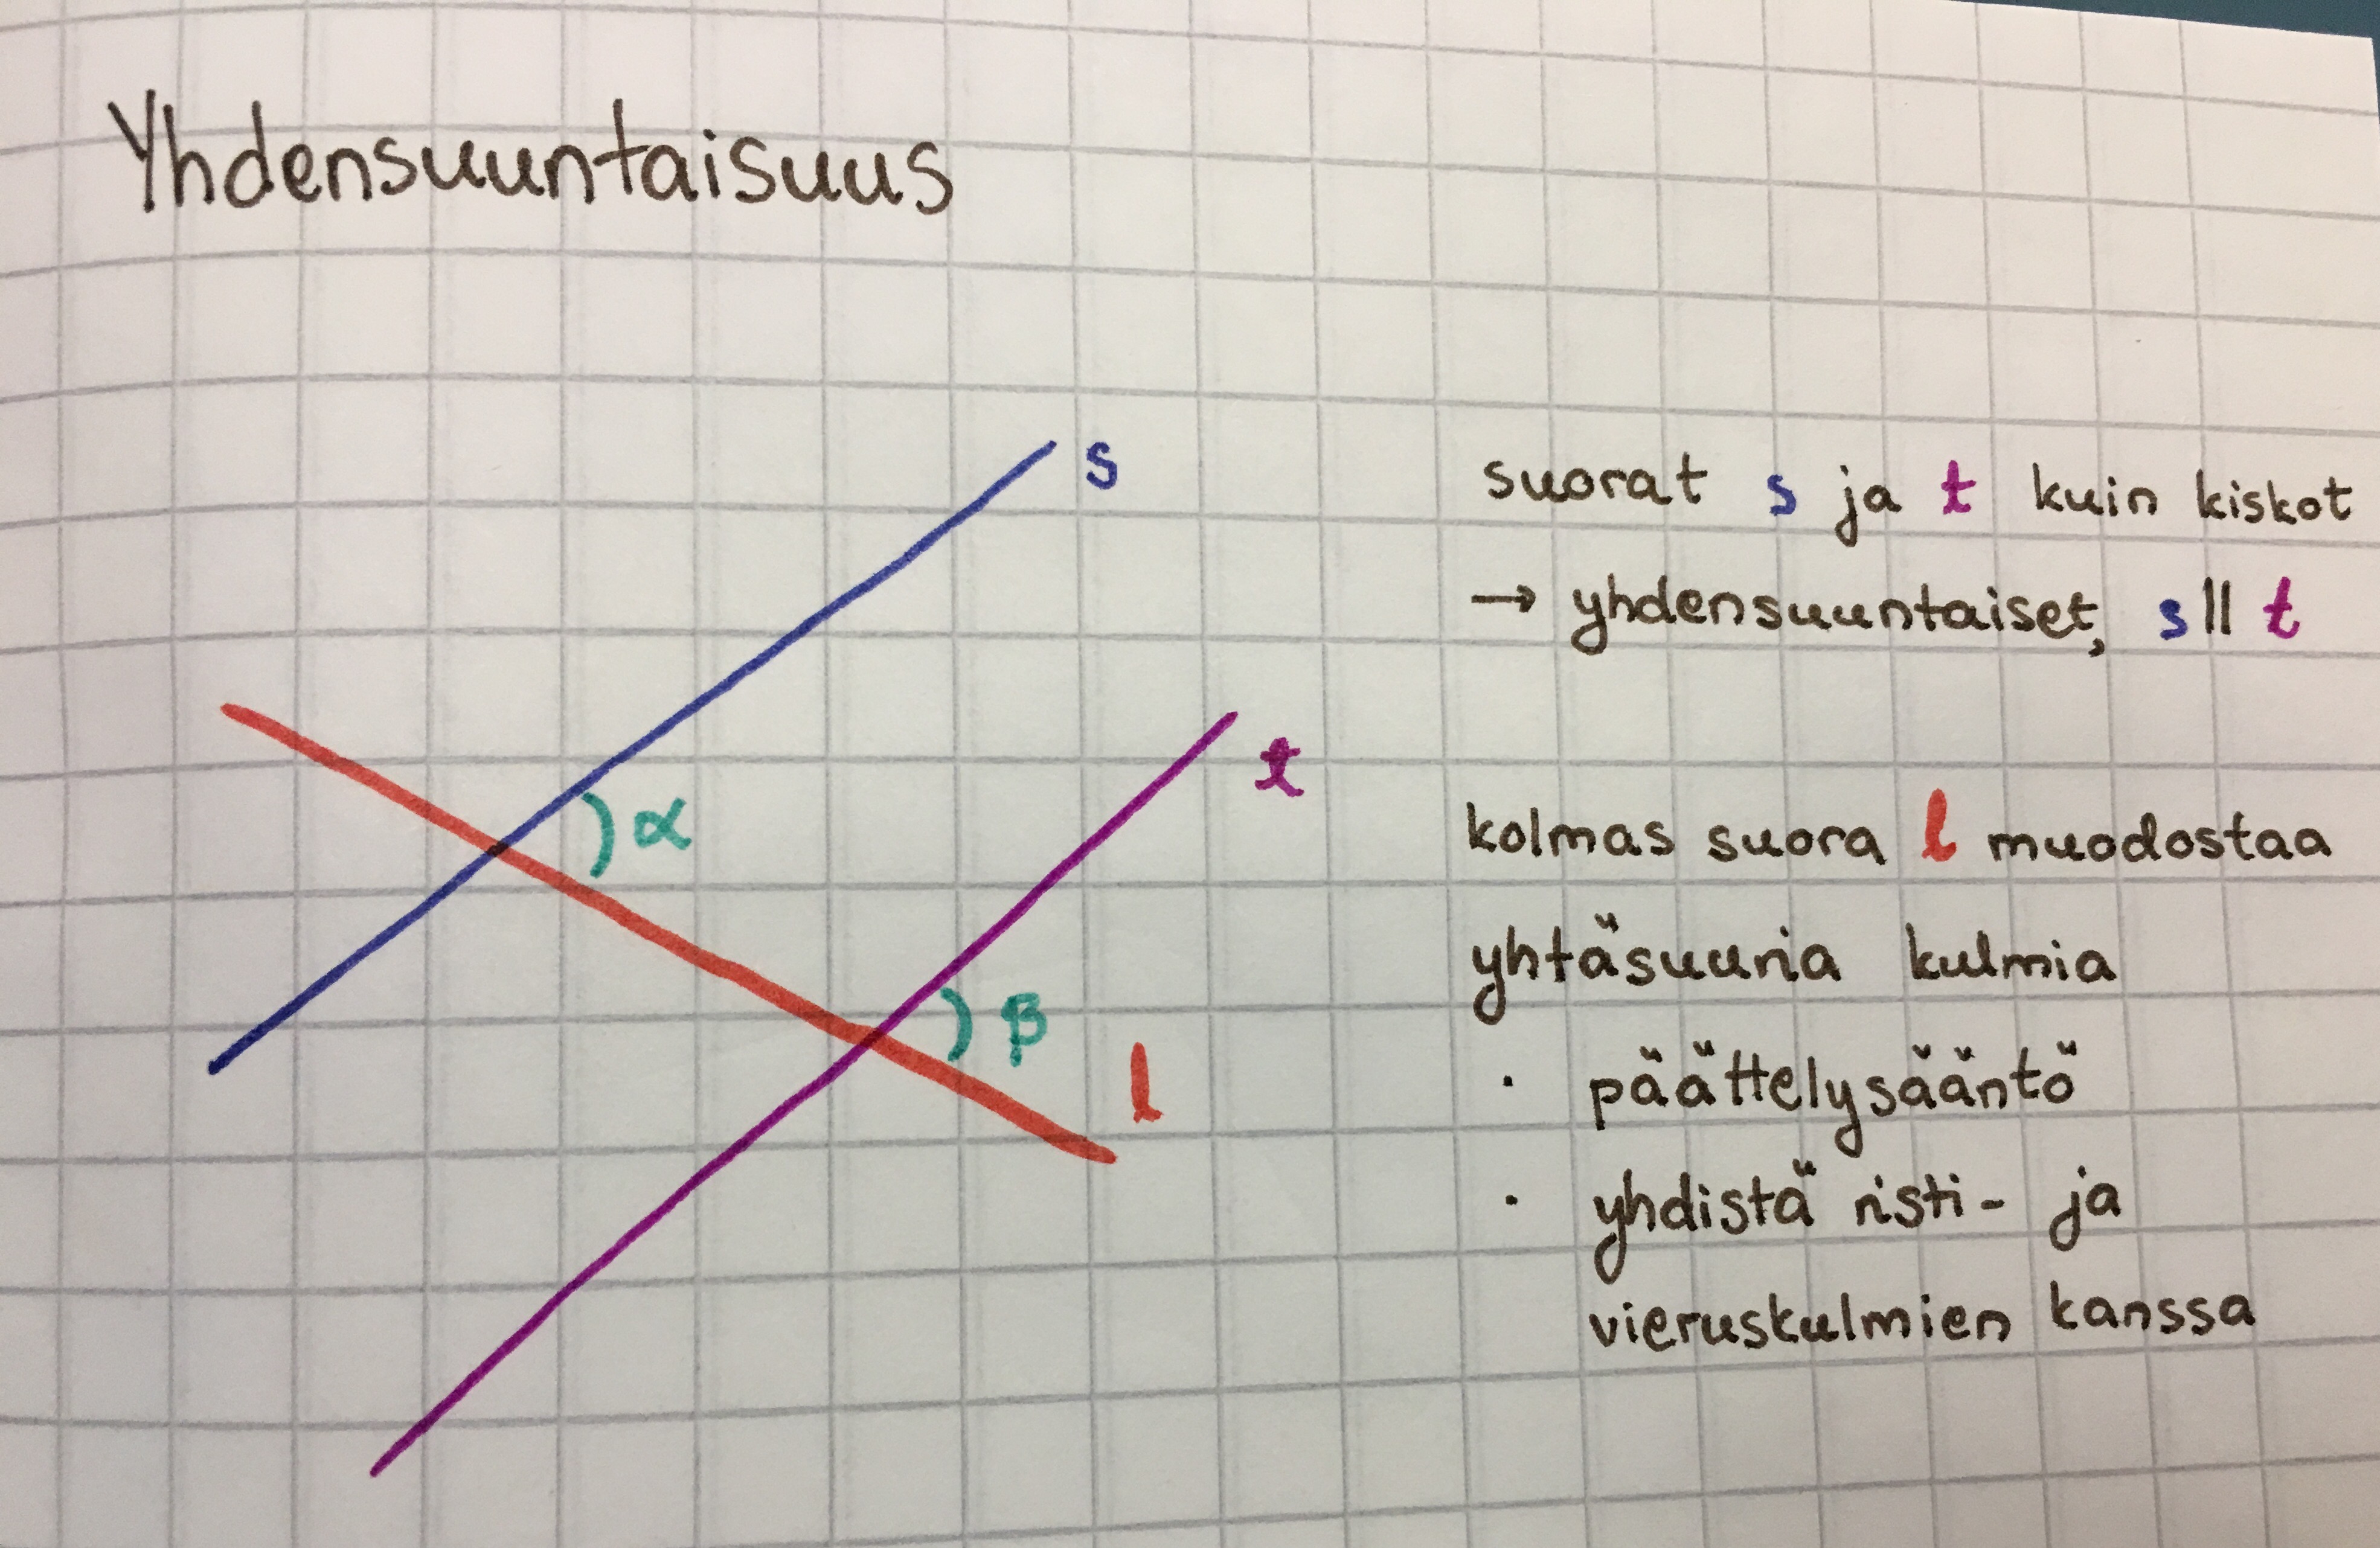 Yhdensuuntaisuus
s
t
α
β
l
suorat s ja t kuin kiskot
→ yhdensuuntaiset, s || t
kolmas suora l muodostaa
yhtäsuuria kulmia
· päättelysääntö
· yhdistä risti- ja
vieruskulmien kanssa